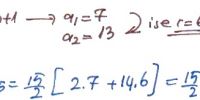 n+1 → a₁=7
a₂=13 ise r=6
5 = 15/2 [2.7+14.6] = 15/2